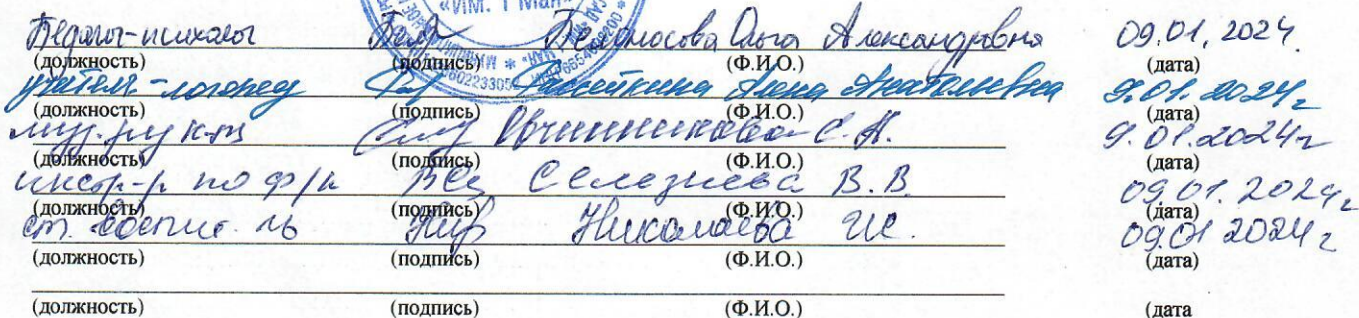 «ИМ. 1 Мая»
Педагог-психолог Белоносова Ольга Александровна 09.01.2024.
(должность) (подпись) (Ф.И.О.) (дата)
учитель-логопед Анатольевна 9.01.2024г
(должность) (подпись) (Ф.И.О.) (дата)
муз. рук-ль Овчинникова С.Н. 9.01.2024г
(должность) (подпись) (Ф.И.О.) (дата)
инстр-р по ф/к Селезнева В.В. 09.01.2024г
(должность) (подпись) (Ф.И.О.) (дата)
ст. воспит-ль Николаева 09.01 2024г
(должность) (подпись) (Ф.И.О.) (дата)
(должность) (подпись) (Ф.И.О.) (дата